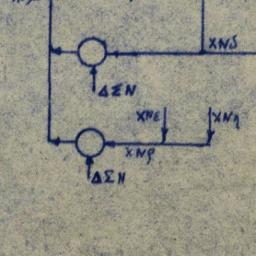 XNδ
ΔΣN
XNε
XNη
XNρ
ΔΣN